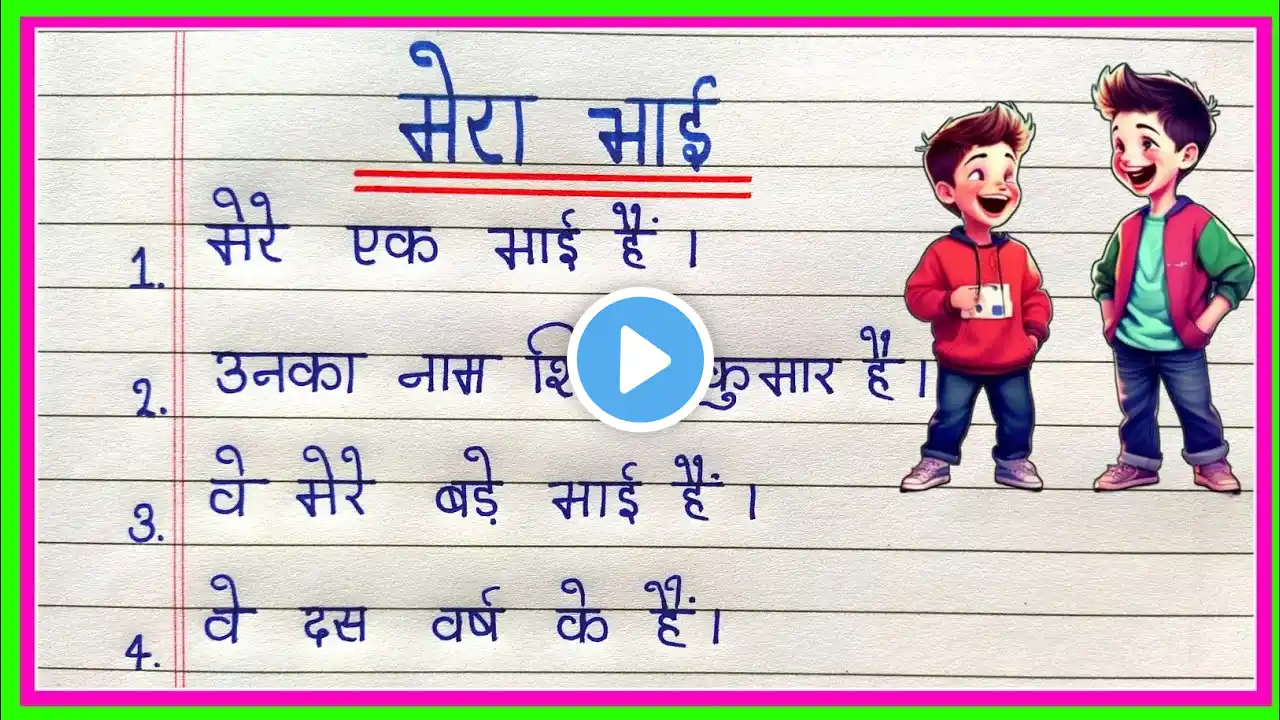 मेरा भाई
1. मेरे एक भाई हैं ।
2. उनका नाम कुमार है ।
3. वे मेरे बड़े भाई हैं ।
4. वे दस वर्ष के हैं ।